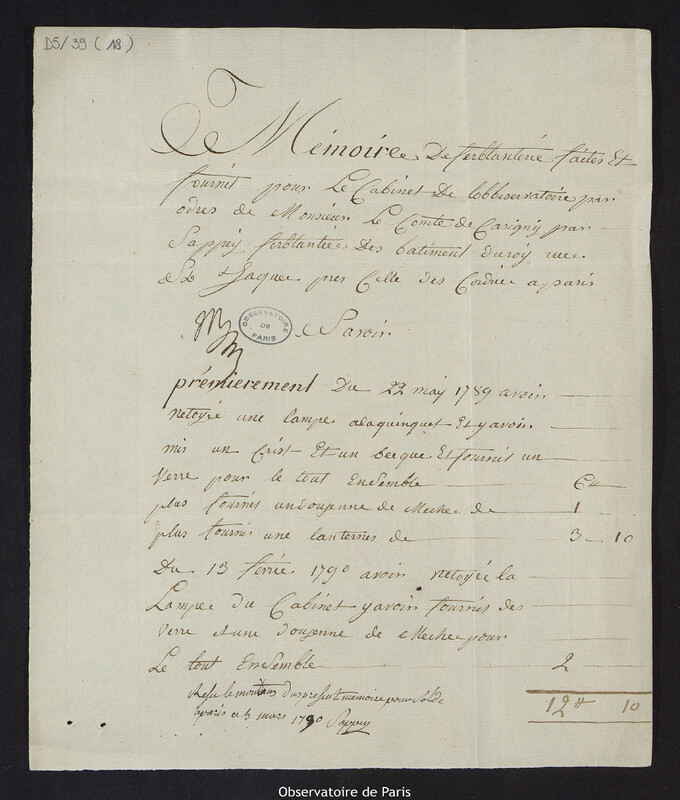 D5/39 (18)
Mémoire De ferblanterie faites Et
fournit pour Le Cabinet De lobbeservatoire par
odres de Monsieur le Comte de Casigny par
Sappey ferblantiée Des batiment du roy rue
St Jaque pres Celle des Cordié a paris
OBSERVATOIRE DE PARIS
Savoir
prémierement Du 22 may 1789 avoir
netoyée une lampe alaquinquet Et y avoir
mis un Crist Et un becque Et fournit un
Verre pour le tout Ensemble 6 ₶
plus fournis un dousenne de Meche de 1
plus fournis une lanternes de 3 10
Du 13 fevrié 1790 avoir netoyée la
Lampe du Cabinet y avoir fournis des
Verre et une dousenne de Meche pour
Le tout Ensemble 2
12 ₶ 10
Resu le montans du present memoire pour Solde
a paris ce 5 mars 1790 Sappey
Observatoire de Paris